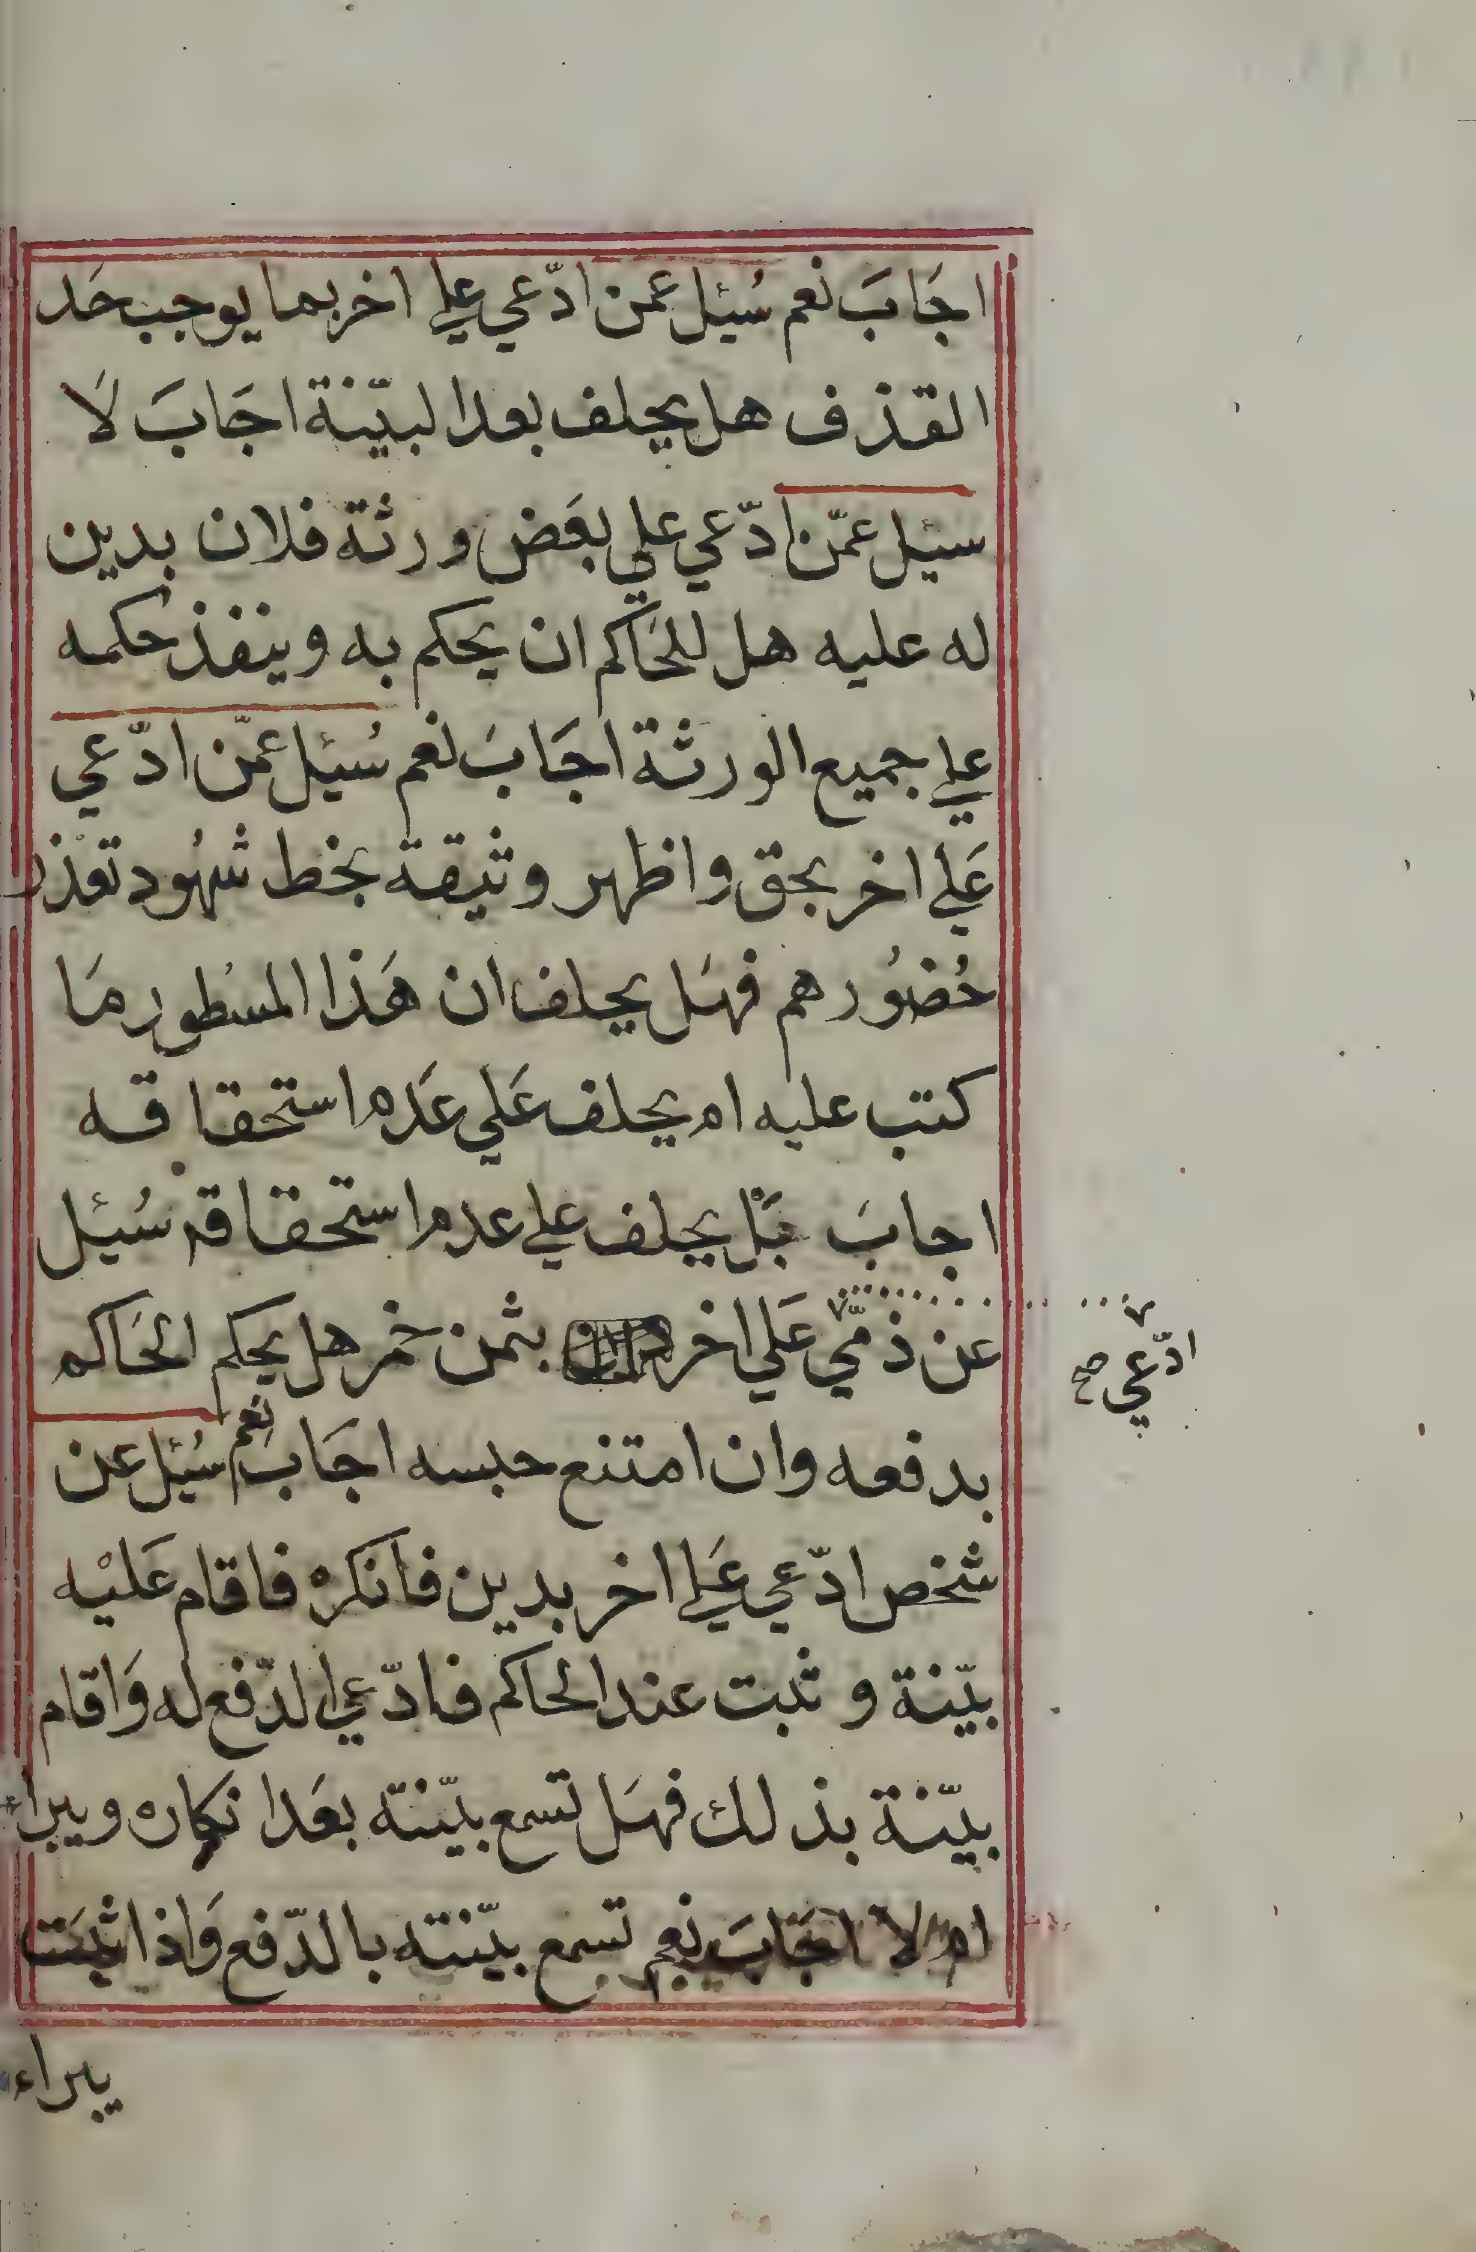 اجَابَ نعم سُئِل عمن ادّعي علي اخر بما يوجب حَد
القذف هل يحلف بعد البيّنة اجَابَ لَا
سئِل عمّن ادّعي علي بعَض ورثة فلان بدين
له عليه هل للحَاكم ان يحكم به وينفذ حُكمه
علي جميع الورثة اجَابَ نعم سُئِل عمّن ادّعي
عَلي اخر بحق واظهر وثيقة بخط شهُود تعذر
حُضُورهم فهَل يحلف ان هَذا المسطور مَا
كتب عليه ام يحلف عَلي عَدم استحقاقه
اجابَ بَلْ يحلف علي عدم استحقاقه سُئِل
عن ذمّي عَلي اخر بثمن خمر هل يحكم الحَاكم
ادّعي صح
بدفعه وان امتنع حبسه اجَابَ نعم سُئِل عن
شخص ادّعي عَلي اخر بدين فانكرهْ فاقام عَليْه
بيّنة وثبت عند الحاكم فادّعي الدّفع له وَاقام
بيّنة بذلك فهَل تسمع بيّنته بعَد انكاره ويبراء
ام لا اجَابَ نعم تسمع بيّنته بالدّفع وَاذا ثبَت
يبراء